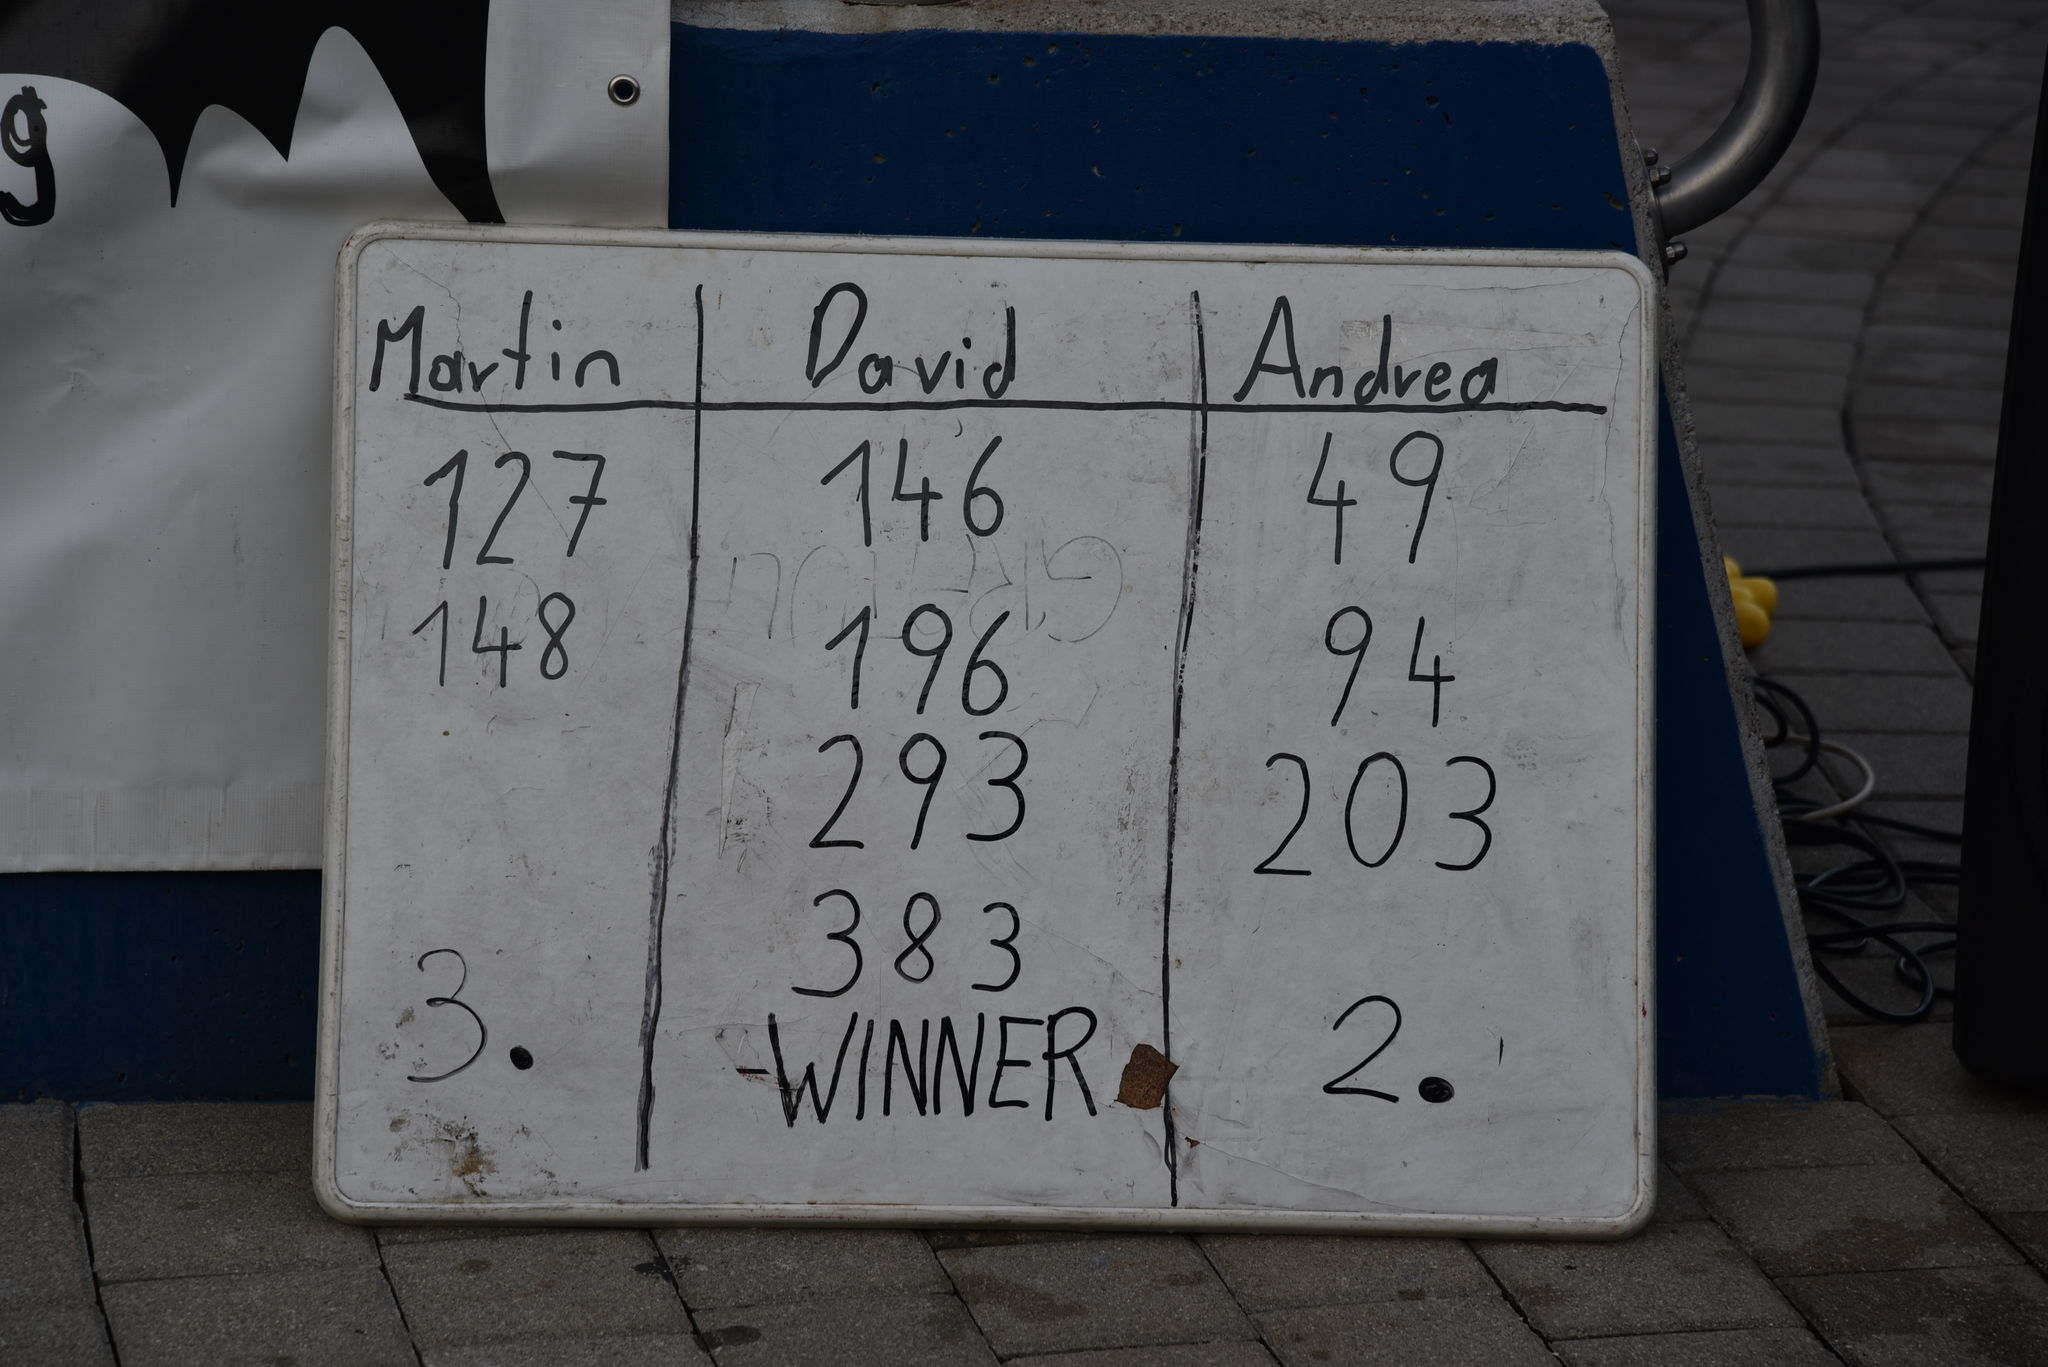 g
Martin David Andrea
127 146 49
148 196 94
293 203
383
3. -WINNER 2.